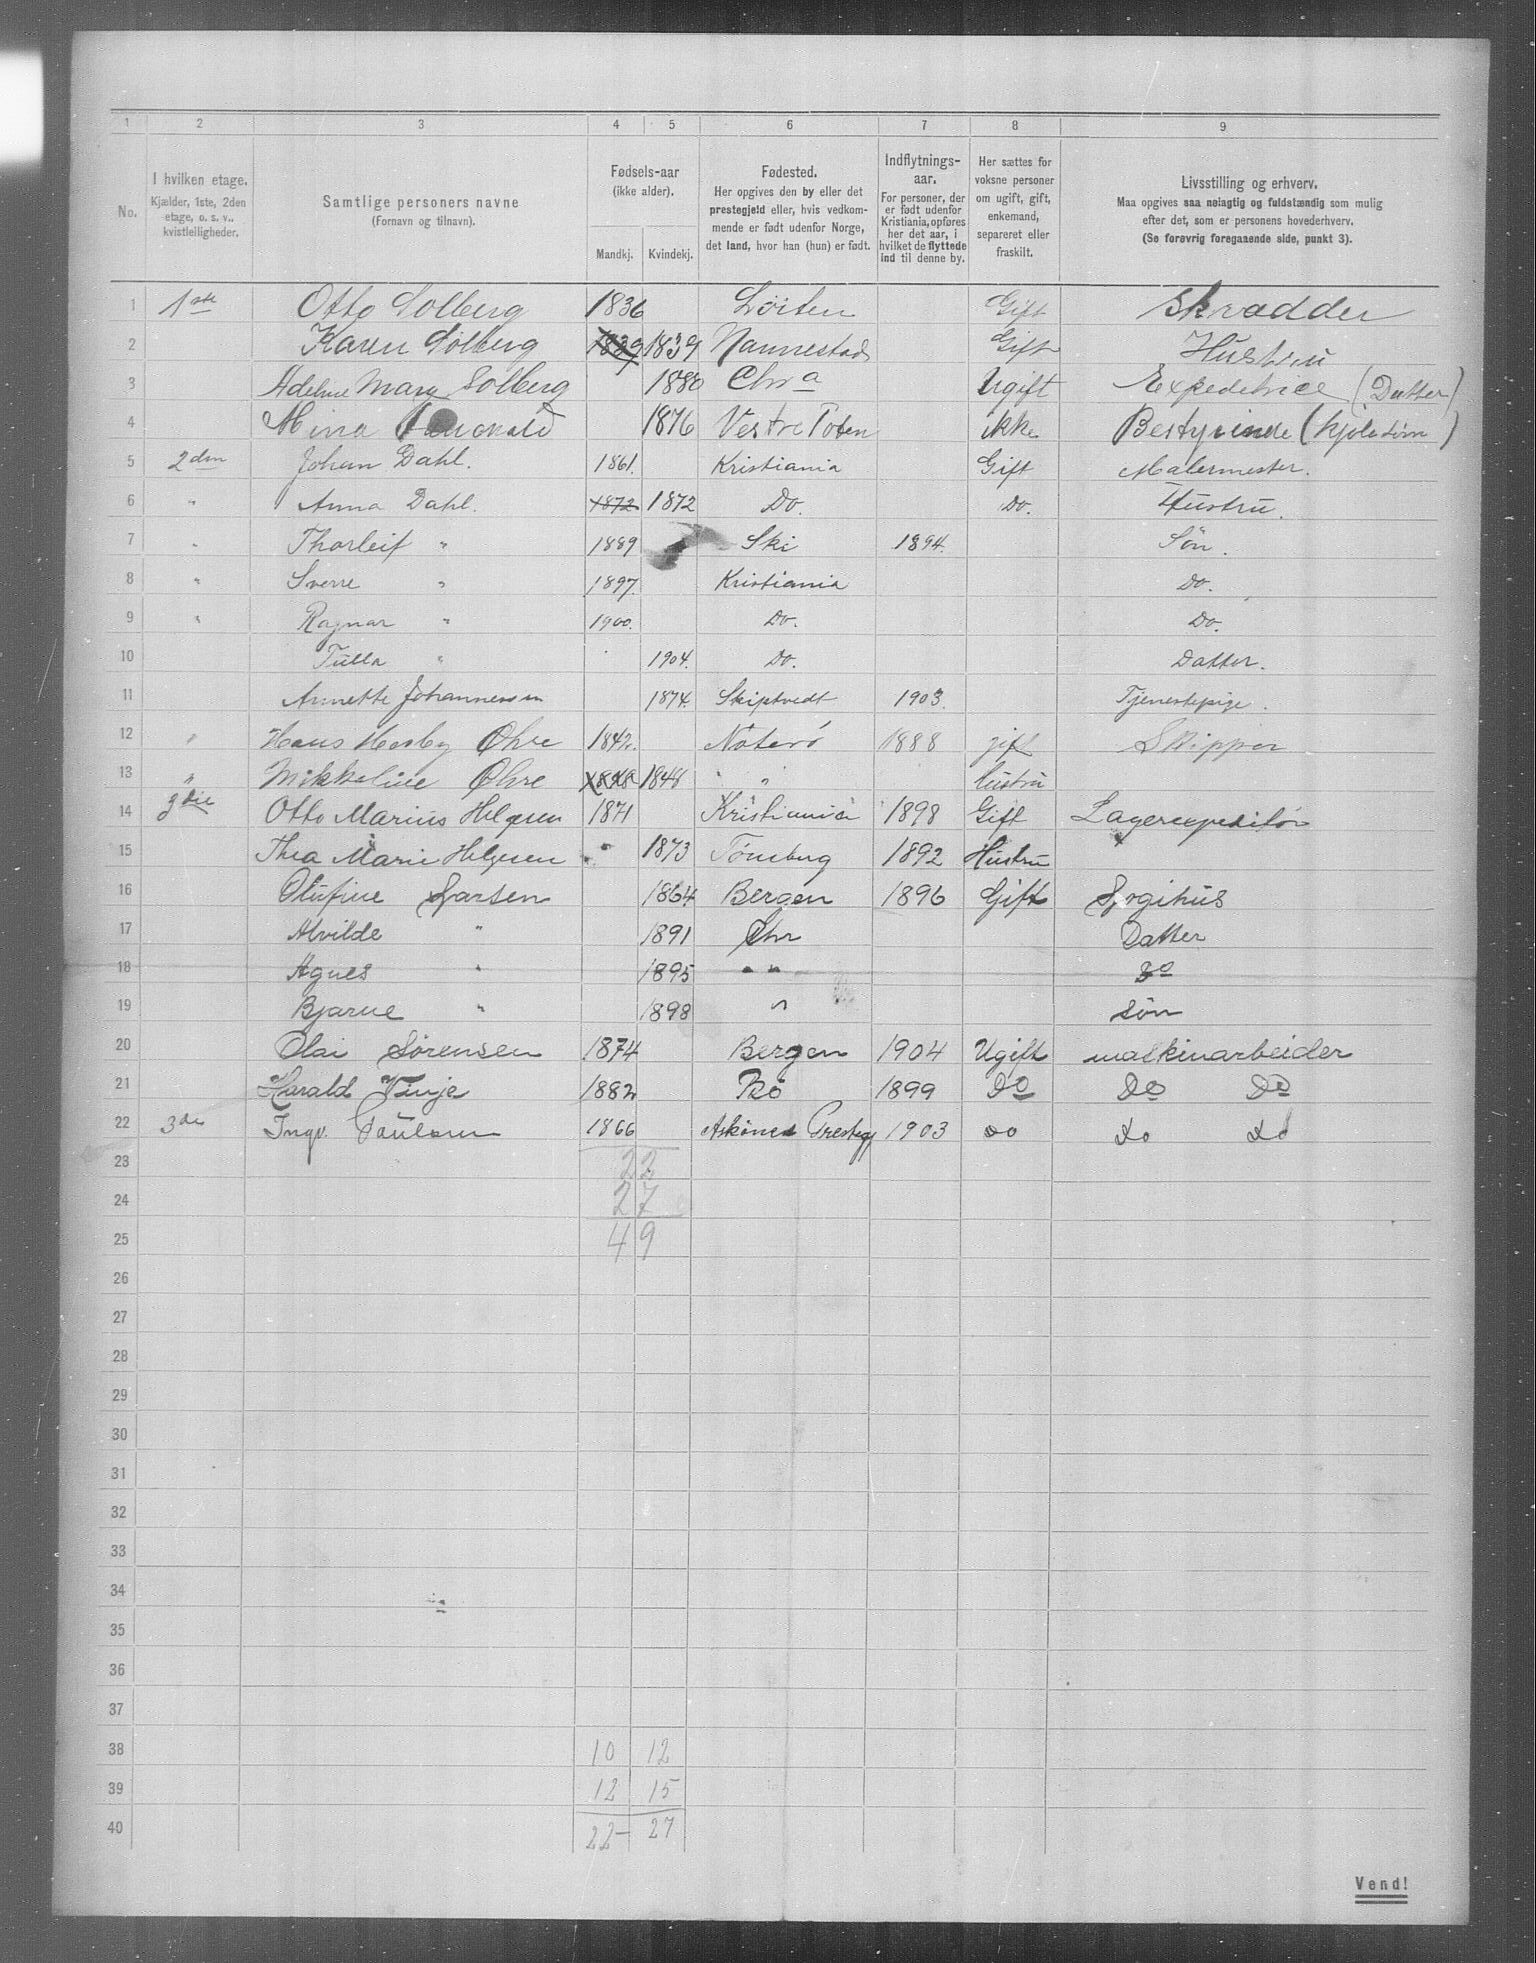 1 2 3 4 5 6 7 8 9
No. I hvilken etage. Kjælder, 1ste, 2den etage, o. s. v., kvistleiligheder. Samtlige personers navne (Fornavn og tilnavn). Fødsels-aar (ikke alder). Mandkj. Kvindekj. Fødested. Her opgives den by eller det prestegjeld eller, hvis vedkommende er født udenfor Norge, det land, hvor han (hun) er født. Indflytnings-aar. For personer, der er født udenfor Kristiania, opføres her det aar, i hvilket de flyttede ind til denne by. Her sættes for voksne personer om ugift, gift, enkemand, separeret eller fraskilt. Livsstilling og erhverv. Maa opgives saa nøiagtig og fuldstændig som mulig efter det, som er personens hovederhverv. (Se forøvrig foregaaende side, punkt 3).
1 1ste Otto Solberg 1836 Løiten Gift Skrædder
2 Karen Solberg 1839 1839 Nannestad Gift Hustru
3 Adeline Mary Solberg 1880 Chra Ugift Expeditrice (Datter)
4 Mina 1876 Vestre Toten ikke Bestyrinde (Kjolesøm)
5 2den Johan Dahl. 1861. Kristiania Gift Malermester.
6 " Anna Dahl. 1872 1872 Do. Do. Hustru.
7 " Thorleif " 1889 Ski 1894. Søn.
8 " Sverre " 1897. Kristiania Do.
9 " Ragnar " 1900. Do. Do.
10 Tulla " 1904. Do. Datter.
11 Annette Johannessen 1874. Skiptvedt 1903. Tjenestepige.
12 " Hans Hesby Ohre 1842. Nøterø 1888 gift Skipper
13 " Mikkeline Ohre 1848 1848 " " Hustru
14 3die Otto Marius Helgesen 1871 Kristiania 1898 Gift Lagerexpeditør
15 Thea Marie Helgesen 1873 Tønsberg 1892 Hustru
16 Olufine Larsen 1864 Bergen 1896 Gift Logihus
17 Alvilde " 1891 Chr Datter
18 Agnes " 1895 " " Do
19 Bjarne " 1898 " Søn
20 Olai Sørensen 1874 Bergen 1904 Ugift maskinarbeider
21 Harald Vinje 1882 Bø 1899 Do Do Do
22 3die Ingv. Paulsen 1866 Presteg 1903 do do do
23 22
24 27
25 49
26
27
28
29
30
31
32
33
34
35
36
37
38 10 12
39 12 15
40 22 - 27
Vend!